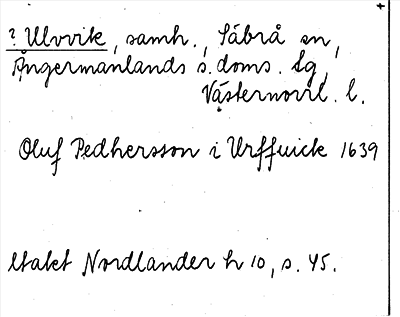 ? Ulvvik, samh., Säbrå sn,
Ångermanlands s. doms. tg,
Västernorrl. l.
Oluf Pedhersson i Urffuick 1639
Utakt Nordlander h 10, s. 45.